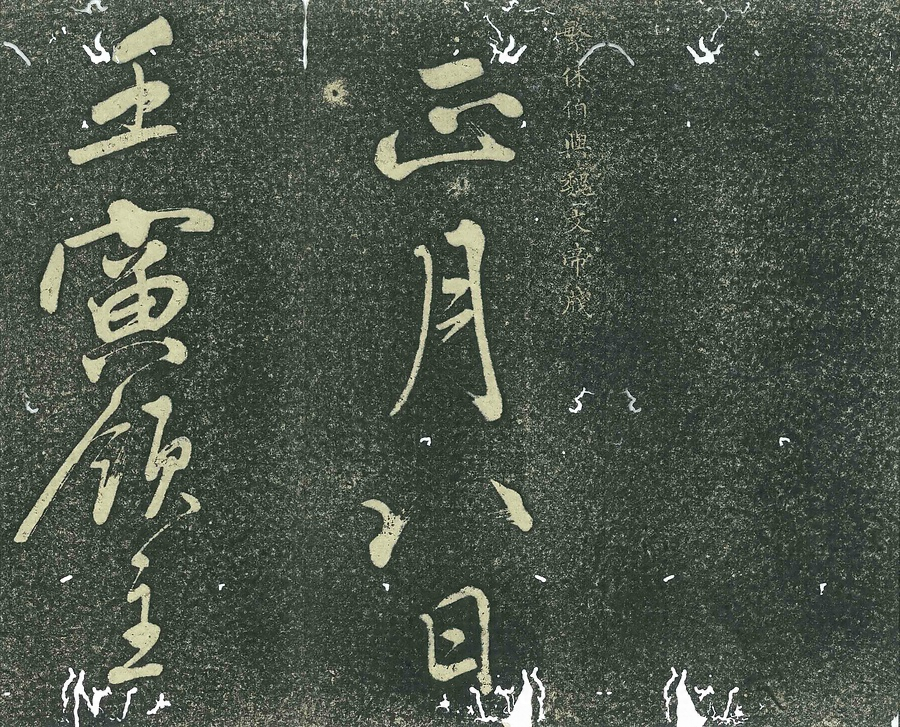 繁休伯與魏文帝牋
正月八日
壬寅領主